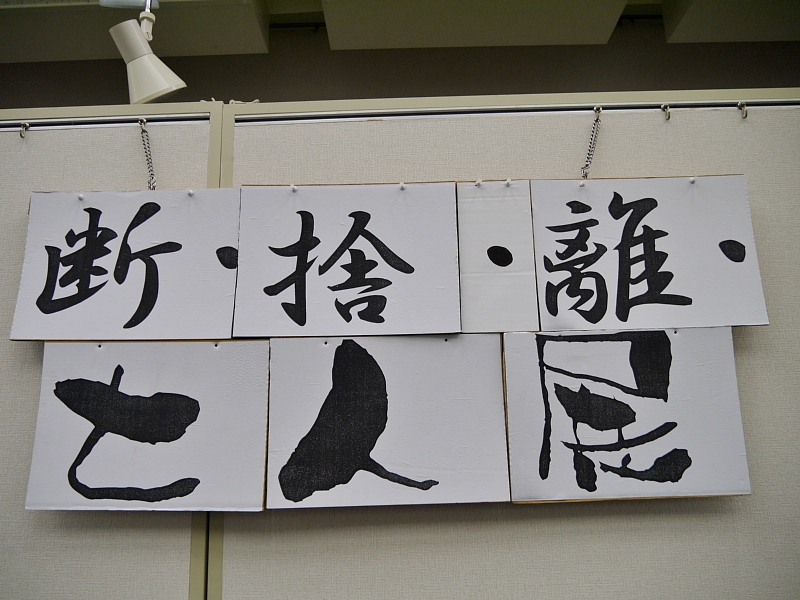 断・捨・離・
七人展